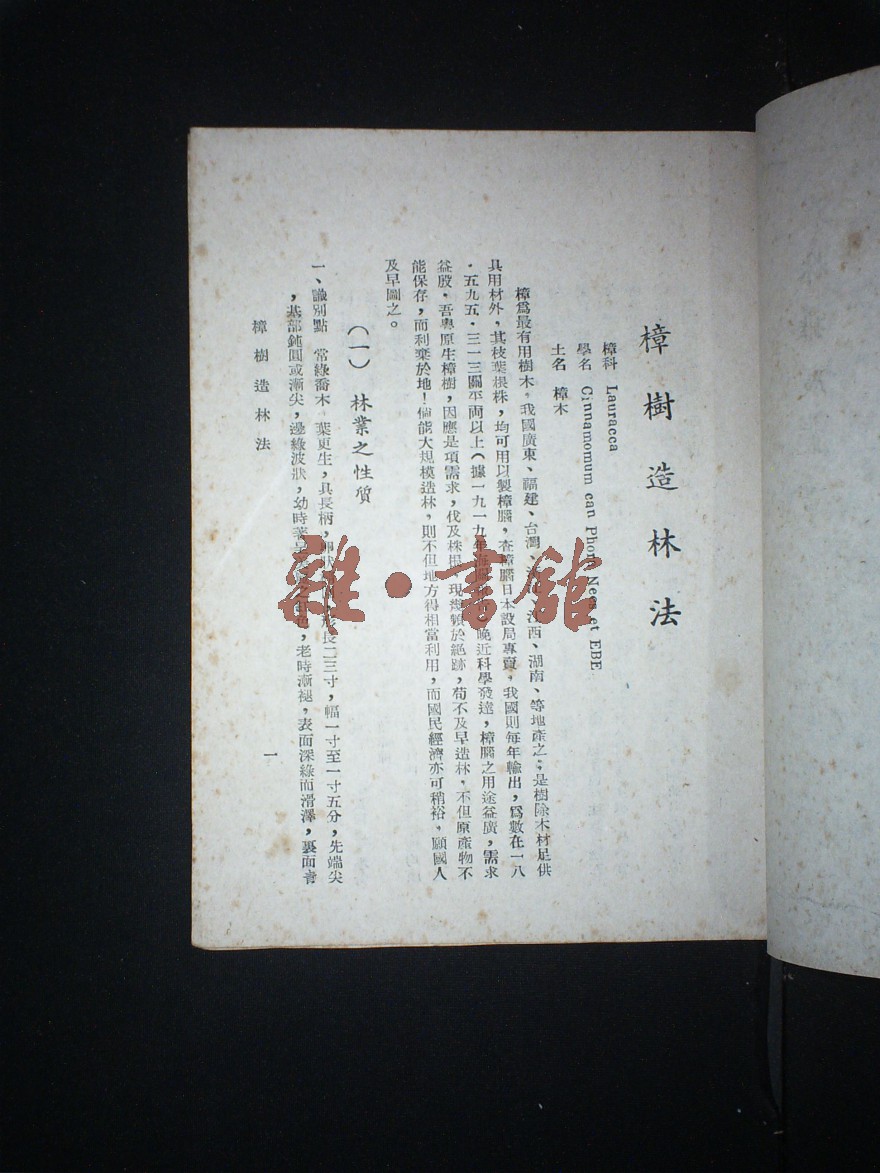 樟樹造林法
樟科 Lauracca
學名 Cinnamomum can Phona Nees et EBE
土名 樟木
樟爲最有用樹木，我國廣東、福建、台灣、江西、湖南、等地產之；是樹除木材足供
具用材外，其枝葉根株，均可用以製樟腦，查樟腦日本設局專賣，我國則每年輸出，爲數在一八
・五九五・三一三關平両以上（據一九一九年海關晚近科學發達，樟腦之用途益廣，需求
益殷・吾粵原生樟樹，因應是項需求，伐及株根，現幾瀕於絕跡，苟不及早造林，不但原產物不
能保存，而利棄於地！倘能大規模造林，則不但地方得相當利用，而國民經濟亦可稍裕，願國人
及早圖之。
（一）林業之性質
一、識別點 常綠喬木，葉更生，具長柄，卵狀形長二三寸，幅一寸至一寸五分，先端尖
，基部鈍圓或漸尖，邊緣波狀，幼時著色，老時漸褪，表面深綠而滑澤，裏面青
樟樹造林法
一
雜・書館